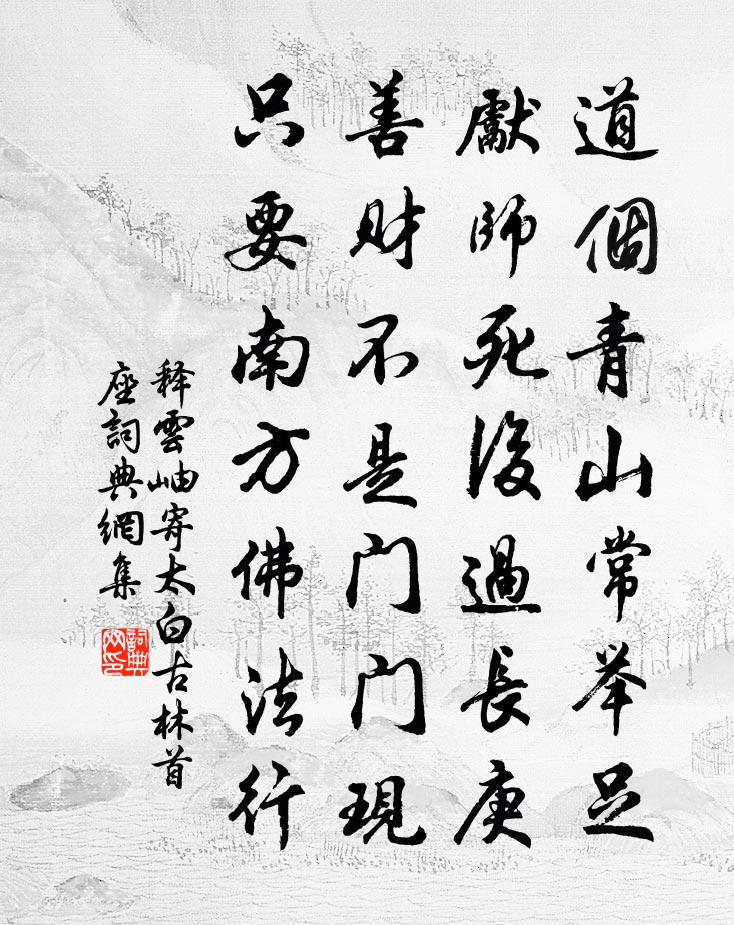 道個青山常举足
獻師死後過長庚
善財不是門門現
只要南方佛法行
释雲岫寄太白古林首
座詞典網集
詞典
网印